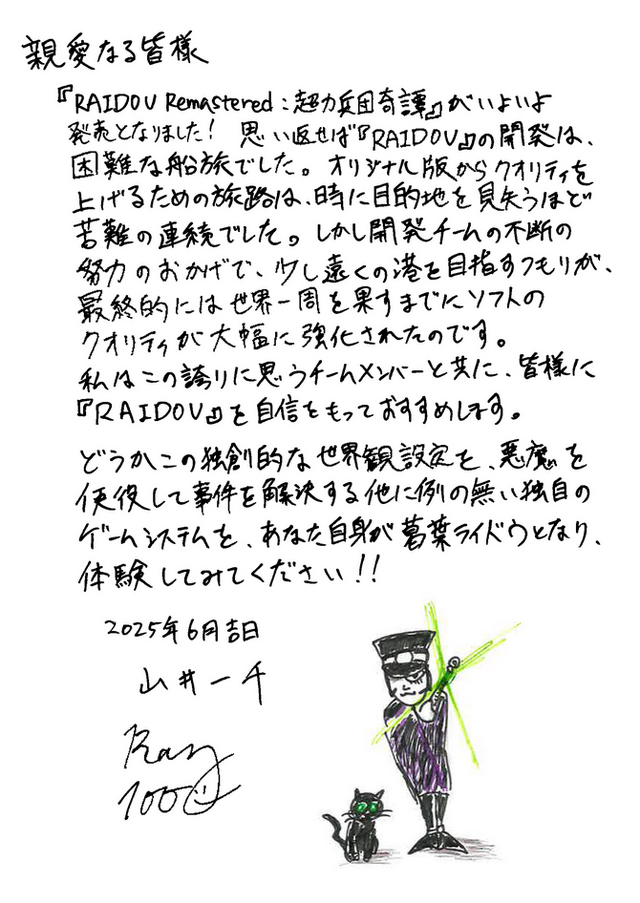 親愛なる皆様
『RAIDOU Remastered：超力兵団奇譚』がいよいよ
発売となりました！ 思い返せば『RAIDOU』の開発は、
困難な船旅でした。オリジナル版からクオリティを
上げるための旅路は、時に目的地を見失うほど
苦難の連続でした。しかし開発チームの不断の
努力のおかげで、少し遠くの港を目指すつもりが、
最終的には世界一周を果すまでにソフトの
クオリティが大幅に強化されたのです。
私はこの誇りに思うチームメンバーと共に、皆様に
『RAIDOU』を自信をもっておすすめします。
どうかこの独創的な世界観設定を、悪魔を
使役して事件を解決する他に例の無い独自の
ゲームシステムを、あなた自身が葛葉ライドウとなり、
体験してみてください！！
2025年6月吉日
山井一千
Ray
1000